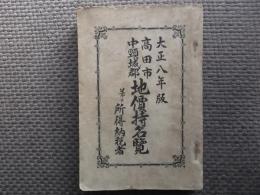 大正八年版
高田市
中頸城郡
地價持名覧
並ニ所得納税者